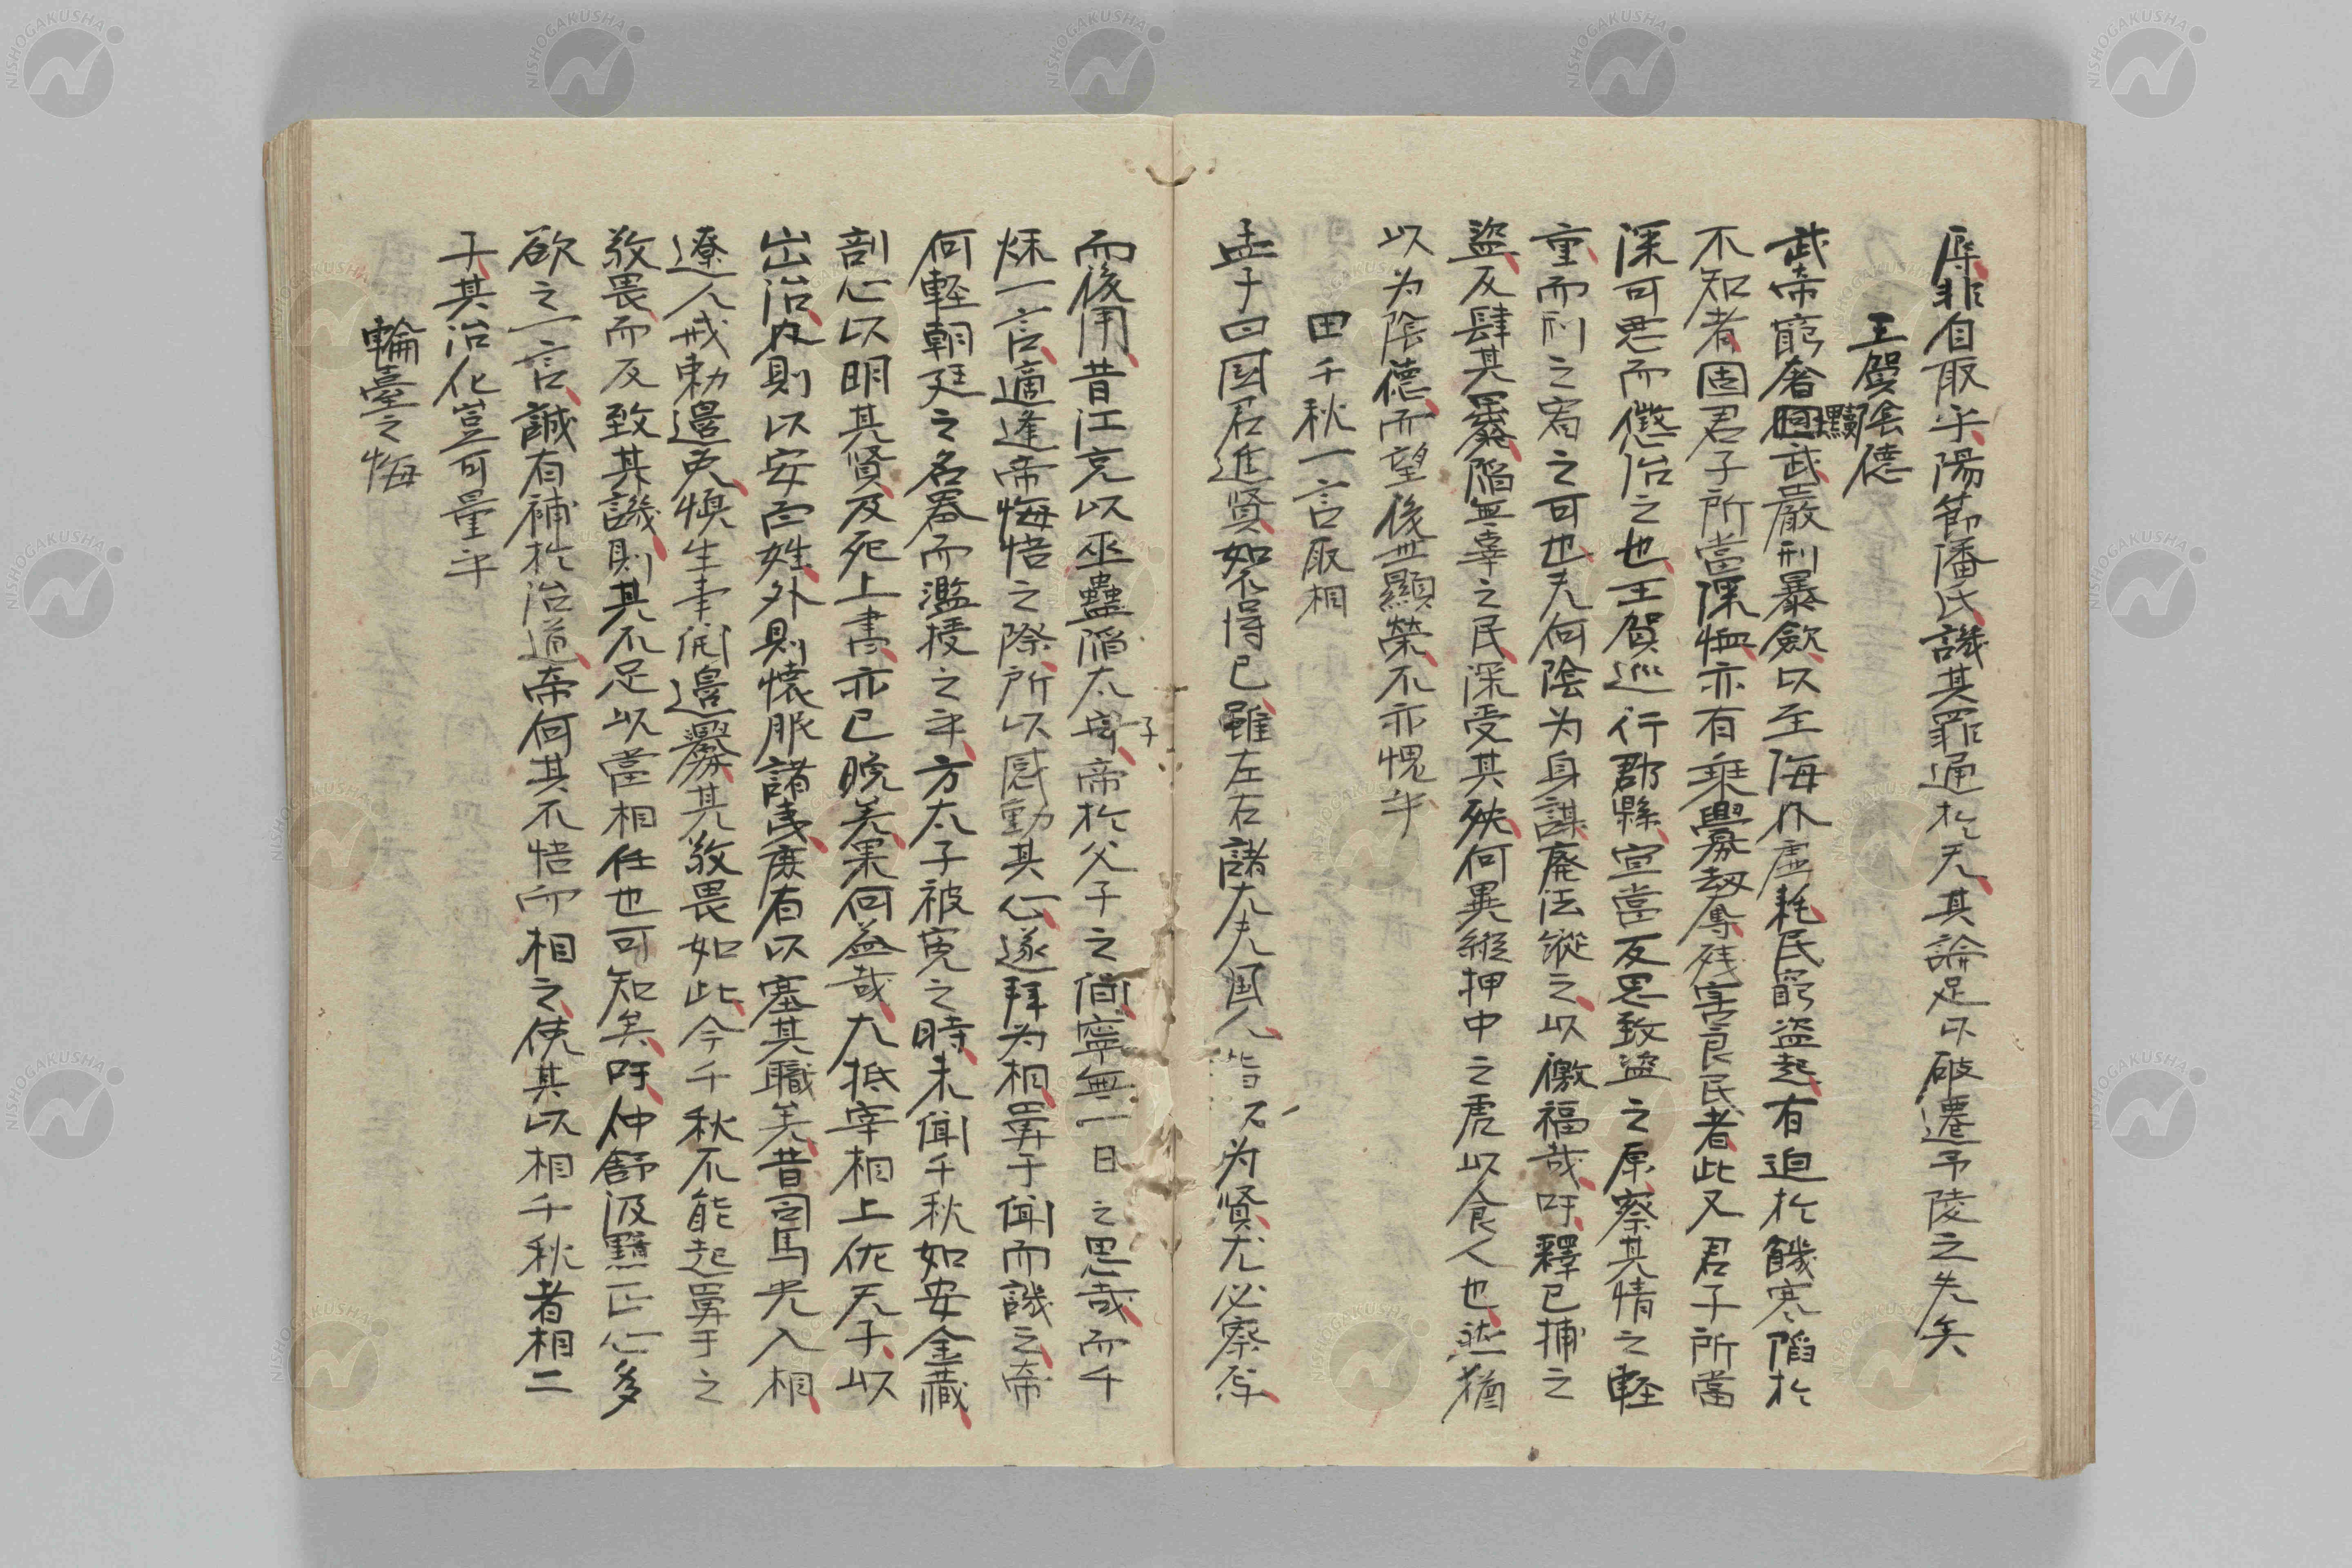 辱非自取乎陽節潘氏譏其罪通於天其論足以破遷予陵之失矣
王賀陰德
武帝窮奢黷武嚴刑暴歛以至海内虚耗民窮盗起有迫於饑寒陷於
不知者固君子所當深恤亦有乗輿剽劫奪残害良民者此又君子所當
深可惡而懲治之也王賀巡行郡縣宣當反思致盗之原察其情之輕
重而刑之宥之可也夫何陰为身謀廃法縱之以徼福哉吁釋已捕之
盗反肆其陷無辜之民深受其殃何異縦押中之虎以食人也迯猶
以为陰德而望後世顯榮不亦愧乎
田千秋一言取相
孟子曰國君進贤如不得已雖左右諸大夫国人皆曰为贤尤必察
而後用昔江充以巫蠱陷太子帝於父子之間寧無一日之思哉而千
秋一言適逢帝悔悟之際所以感動其心遂拜为相匈于聞而譏之帝
何輕朝廷之名器而濫授之乎方太子被寃之時未聞千秋如安金藏
剖心以明其贤及死上書亦已晚矣果何益哉大抵宰相上佐天子以
出治内則以安百姓外則懐服諸夷庶有以塞其職矣昔司馬光入相
遼人戒勅邊吏慎生事開邊釁其敬畏如此今千秋不能起匈于之
敬畏而反致其譏則其不足以當相任也可知矣吁仲舒汲黯正心多
欲之一言誠有補於治道帝何其不悟而相之使其以相千秋者相二
子其治化豈可量乎
輪臺之悔
NISHOGAKUSHA